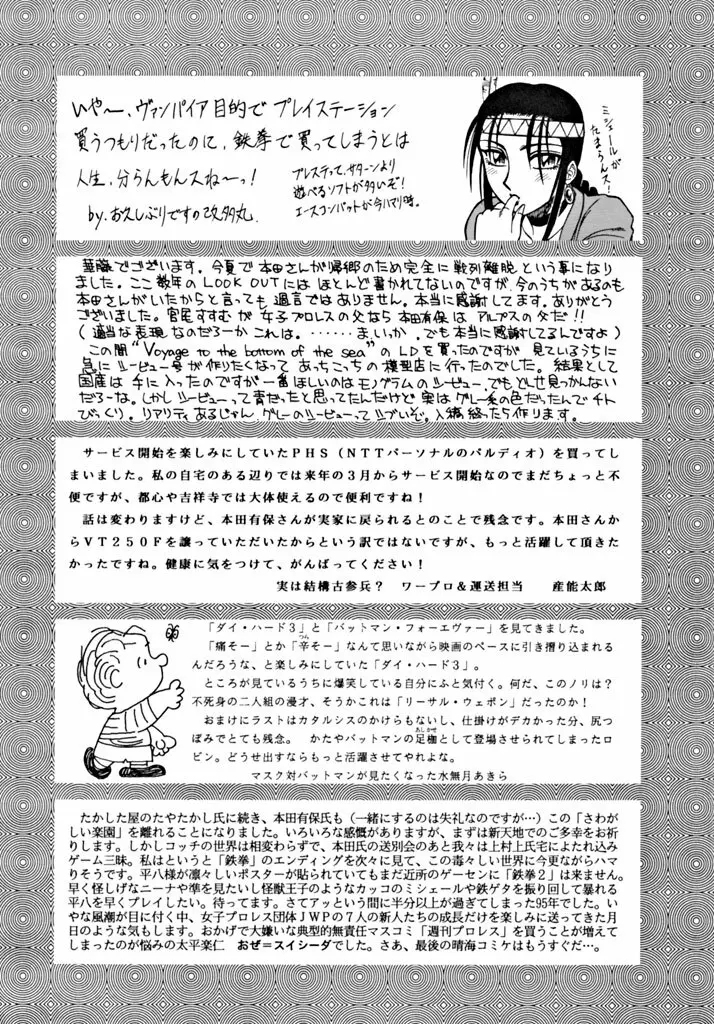 いや～、ヴァンパイア目的で プレイステーション
買うつもりだったのに、鉄拳で買ってしまうとは
人生、分らんもんスね～っ！
by.お久しぶりですの改多丸
プレステって、サターンより
遊べるソフトが多いぞ！
エースコンバットが今ハマり時。
ミシェールが
たまらんス！
華藤でございます。今夏で本田さんが帰郷のため完全に戦列離脱という事になり
ました。ここ数年のLOOK OUTには ほとんど書かれてないのですが、今のうちがあるのも
本田さんがいたからと言っても過言ではありません。本当に感謝してます。ありがとう
ございました。宮尾すすむが女子プロレスの父なら本田有保はアルプスの父だ!!
（適当な表現なのだろーかこれは。‥‥‥ま、いっか。でも本当に感謝してるんですよ）
この間"Voyage to the bottom of the sea"のLDを買ったのですが見ているうちに
急にシービュー号が作りたくなって あっちこっちの模型店に行ったのでした。結果として
国産は手に入ったのですが一番ほしいのはモノグラムのシービュー、でもどしせ見っかんない
だろーな。しかしシービューって青だったと思ってたんだけど実はグレー系の色だったんでチト
びっくり。リアリティあるじゃん、グレーのシービューってシブいぞ。入稿終ったら作ります。
サービス開始を楽しみにしていたＰＨＳ（ＮＴＴパーソナルのパルディオ）を買ってし
まいました。私の自宅のある辺りでは来年の３月からサービス開始なのでまだちょっと不
便ですが、都心や吉祥寺では大体使えるので便利ですね！
話は変わりますけど、本田有保さんが実家に戻られるとのことで残念です。本田さんか
らＶＴ２５０Ｆを譲っていただいたからという訳ではないですが、もっと活躍して頂きた
かったですね。健康に気をつけて、がんばってください！
実は結構古参兵？　ワープロ＆運送担当　産能太郎
「ダイ・ハード３」と「バットマン・フォーエヴァー」を見てきました。
「痛そー」とか「辛そー」なんて思いながら映画のペースに引き摺り込まれる
つら
んだろうな、と楽しみにしていた「ダイ・ハード３」。
ところが見ているうちに爆笑している自分にふと気付く。何だ、このノリは？
不死身の二人組の漫才、そうかこれは「リーサル・ウェポン」だったのか！
おまけにラストはカタルシスのかけらもないし、仕掛けがデカかった分、尻つ
ぼみでとても残念。　かたやバットマンの足枷として登場させられてしまったロ
あしかせ
ビン。どうせ出すならもっと活躍させてやれよな。
マスク対バットマンが見たくなった水無月あきら
たかした屋のたやたかし氏に続き、本田有保氏も（一緒にするのは失礼なのですが…）この「さわが
しい楽園」を離れることになりました。いろいろな感慨がありますが、まずは新天地でのご多幸をお祈
りします。しかしコッチの世界は相変わらずで、本田氏の送別会のあと我々は上村上氏宅によたれ込み
ゲーム三昧。私はというと「鉄拳」のエンディングを次々に見て、この毒々しい世界に今更ながらハマ
りそうです。平八様が凛々しいポスターが貼られていてもまだ近所のゲーセンに「鉄拳２」は来ません。
早く怪しげなニーナや準を見たいし怪獣王子のようなカッコのミシェールや鉄ゲタを振り回して暴れる
平八を早くプレイしたい。待ってます。さてアッという間に半分以上が過ぎてしまった95年でした。いや
な風潮が目に付く中、女子プロレス団体ＪＷＰの７人の新人たちの成長だけを楽しみに送ってきた月
日のような気もします。おかげで大嫌いな典型的無責任マスコミ「週刊プロレス」を買うことが増えて
しまったのが悩みの太平楽仁　おぜ＝スイシーダでした。さあ、最後の晴海コミケはもうすぐだ…。